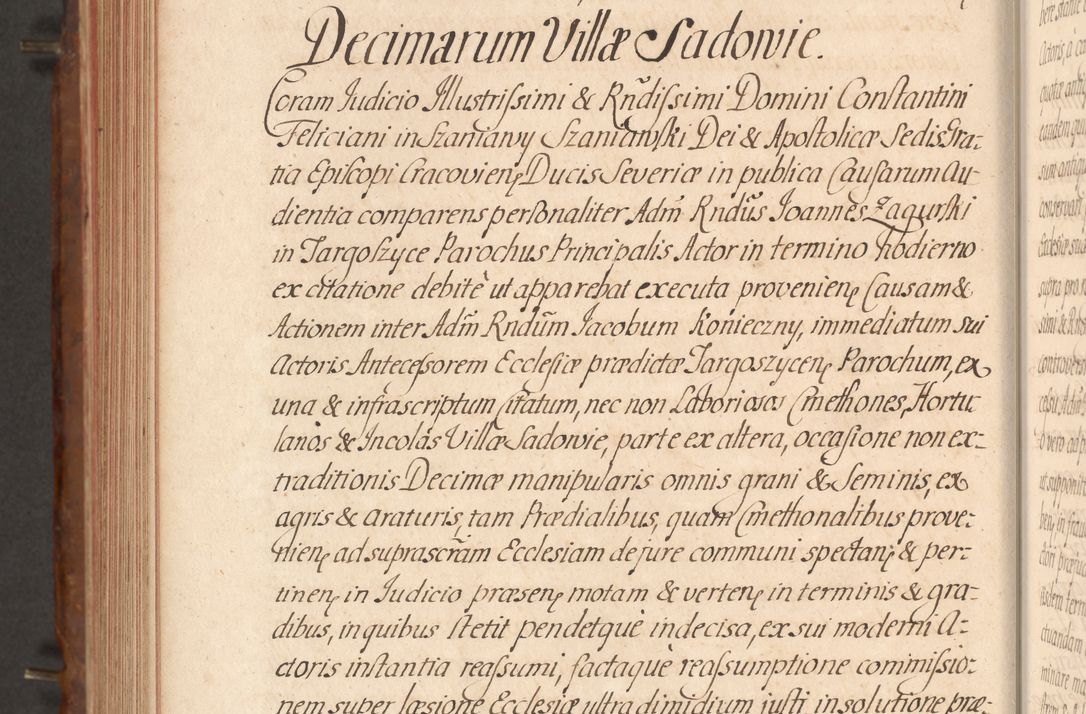 Decimarum Villæ Sadowie.
Coram Iudicio Illustrissimi & Rñdissimi Domini Constantini
Feliciani in Szaniawy Szaniawski Dei & Apostolicæ Sedis Gra=
tia Episcopi Cracovienę Ducis Severiæ in publica Causarum Au
dientia comparens personaliter Adm̃ Rndũs Ioannes Zagurski
in Targoszyce Parochus Principalis Actor in termino hodierno
ex citatione debitè ut apparebat executa provenienę Causam &
Actionem inter Adm̃ Rndũm Iacobum Konieczny, immediatum sui
Actoris Antecessorem Ecclesiæ prædictæ Targoszycenę Parochum, ex
una & infrascriptum Citatum, nec non Laboriosos Cmethones, Hortu=
lanos & Incolas Villæ Sadowie, parte ex altera, occasione non ex=
traditionis Decimæ manipularis omnis grani & Seminis, ex
agris & araturis, tam Prædialibus, quam Cmethonalibus prove=
nienę ad suprascr̃am Ecclesiam de jure communi spectanę & per=
tinenę in Iudicio præsenę motam & vertenę in terminis & gra=
dibus, in quibus stetit pendetquè indecisa, ex sui moderni A=
ctoris instantia reassumi, factaquè reassumptione commissio=
nem super læsione Ecclesiæ ultra dimidium justi in solutione præ=